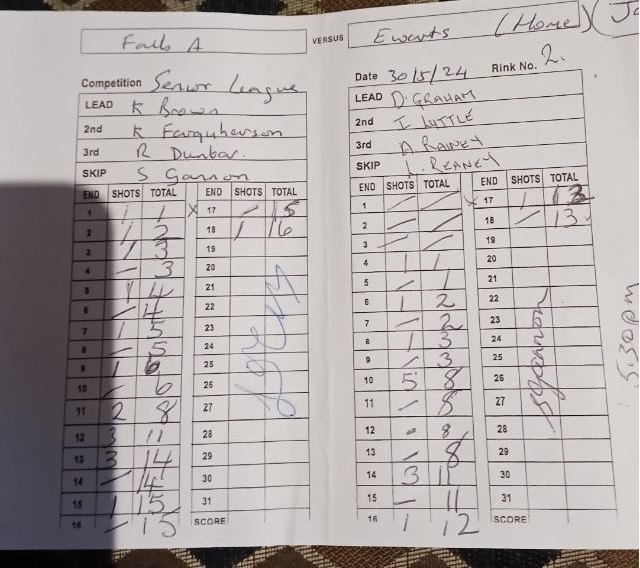 Falls A VERSUS Ewarts (Home)
Competition Senior League
LEAD K Brown
2nd K Farquharson
3rd R Dunbar.
SKIP S Gannon
END SHOTS TOTAL END SHOTS TOTAL
1 1 1 X 17 – 15
2 1 2 18 1 16
3 1 3 19
4 – 3 20
5 1 4 21
6 – 4 22
7 1 5 23
8 – 5 24
9 1 6 25
10 – 6 26
11 2 8 27
12 3 11 28
13 3 14 29
14 – 14 30
15 1 15 31
16 – 15 SCORE
Date 30/5/24 Rink No. 2.
LEAD D. GRAHAM
2nd I LUTTLE
3rd A RAINEY
SKIP L. REANEY
END SHOTS TOTAL END SHOTS TOTAL
1 – – X 17 1 13
2 – – 18 – 13
3 – – 19
4 1 1 20
5 – 1 21
6 1 2 22
7 – 2 23
8 1 3 24
9 – 3 25
10 5 8 26
11 – 8 27
12 – 8 28
13 – 8 29
14 3 11 30
15 – 11 31
16 1 12 SCORE
SGannon
5.30pm